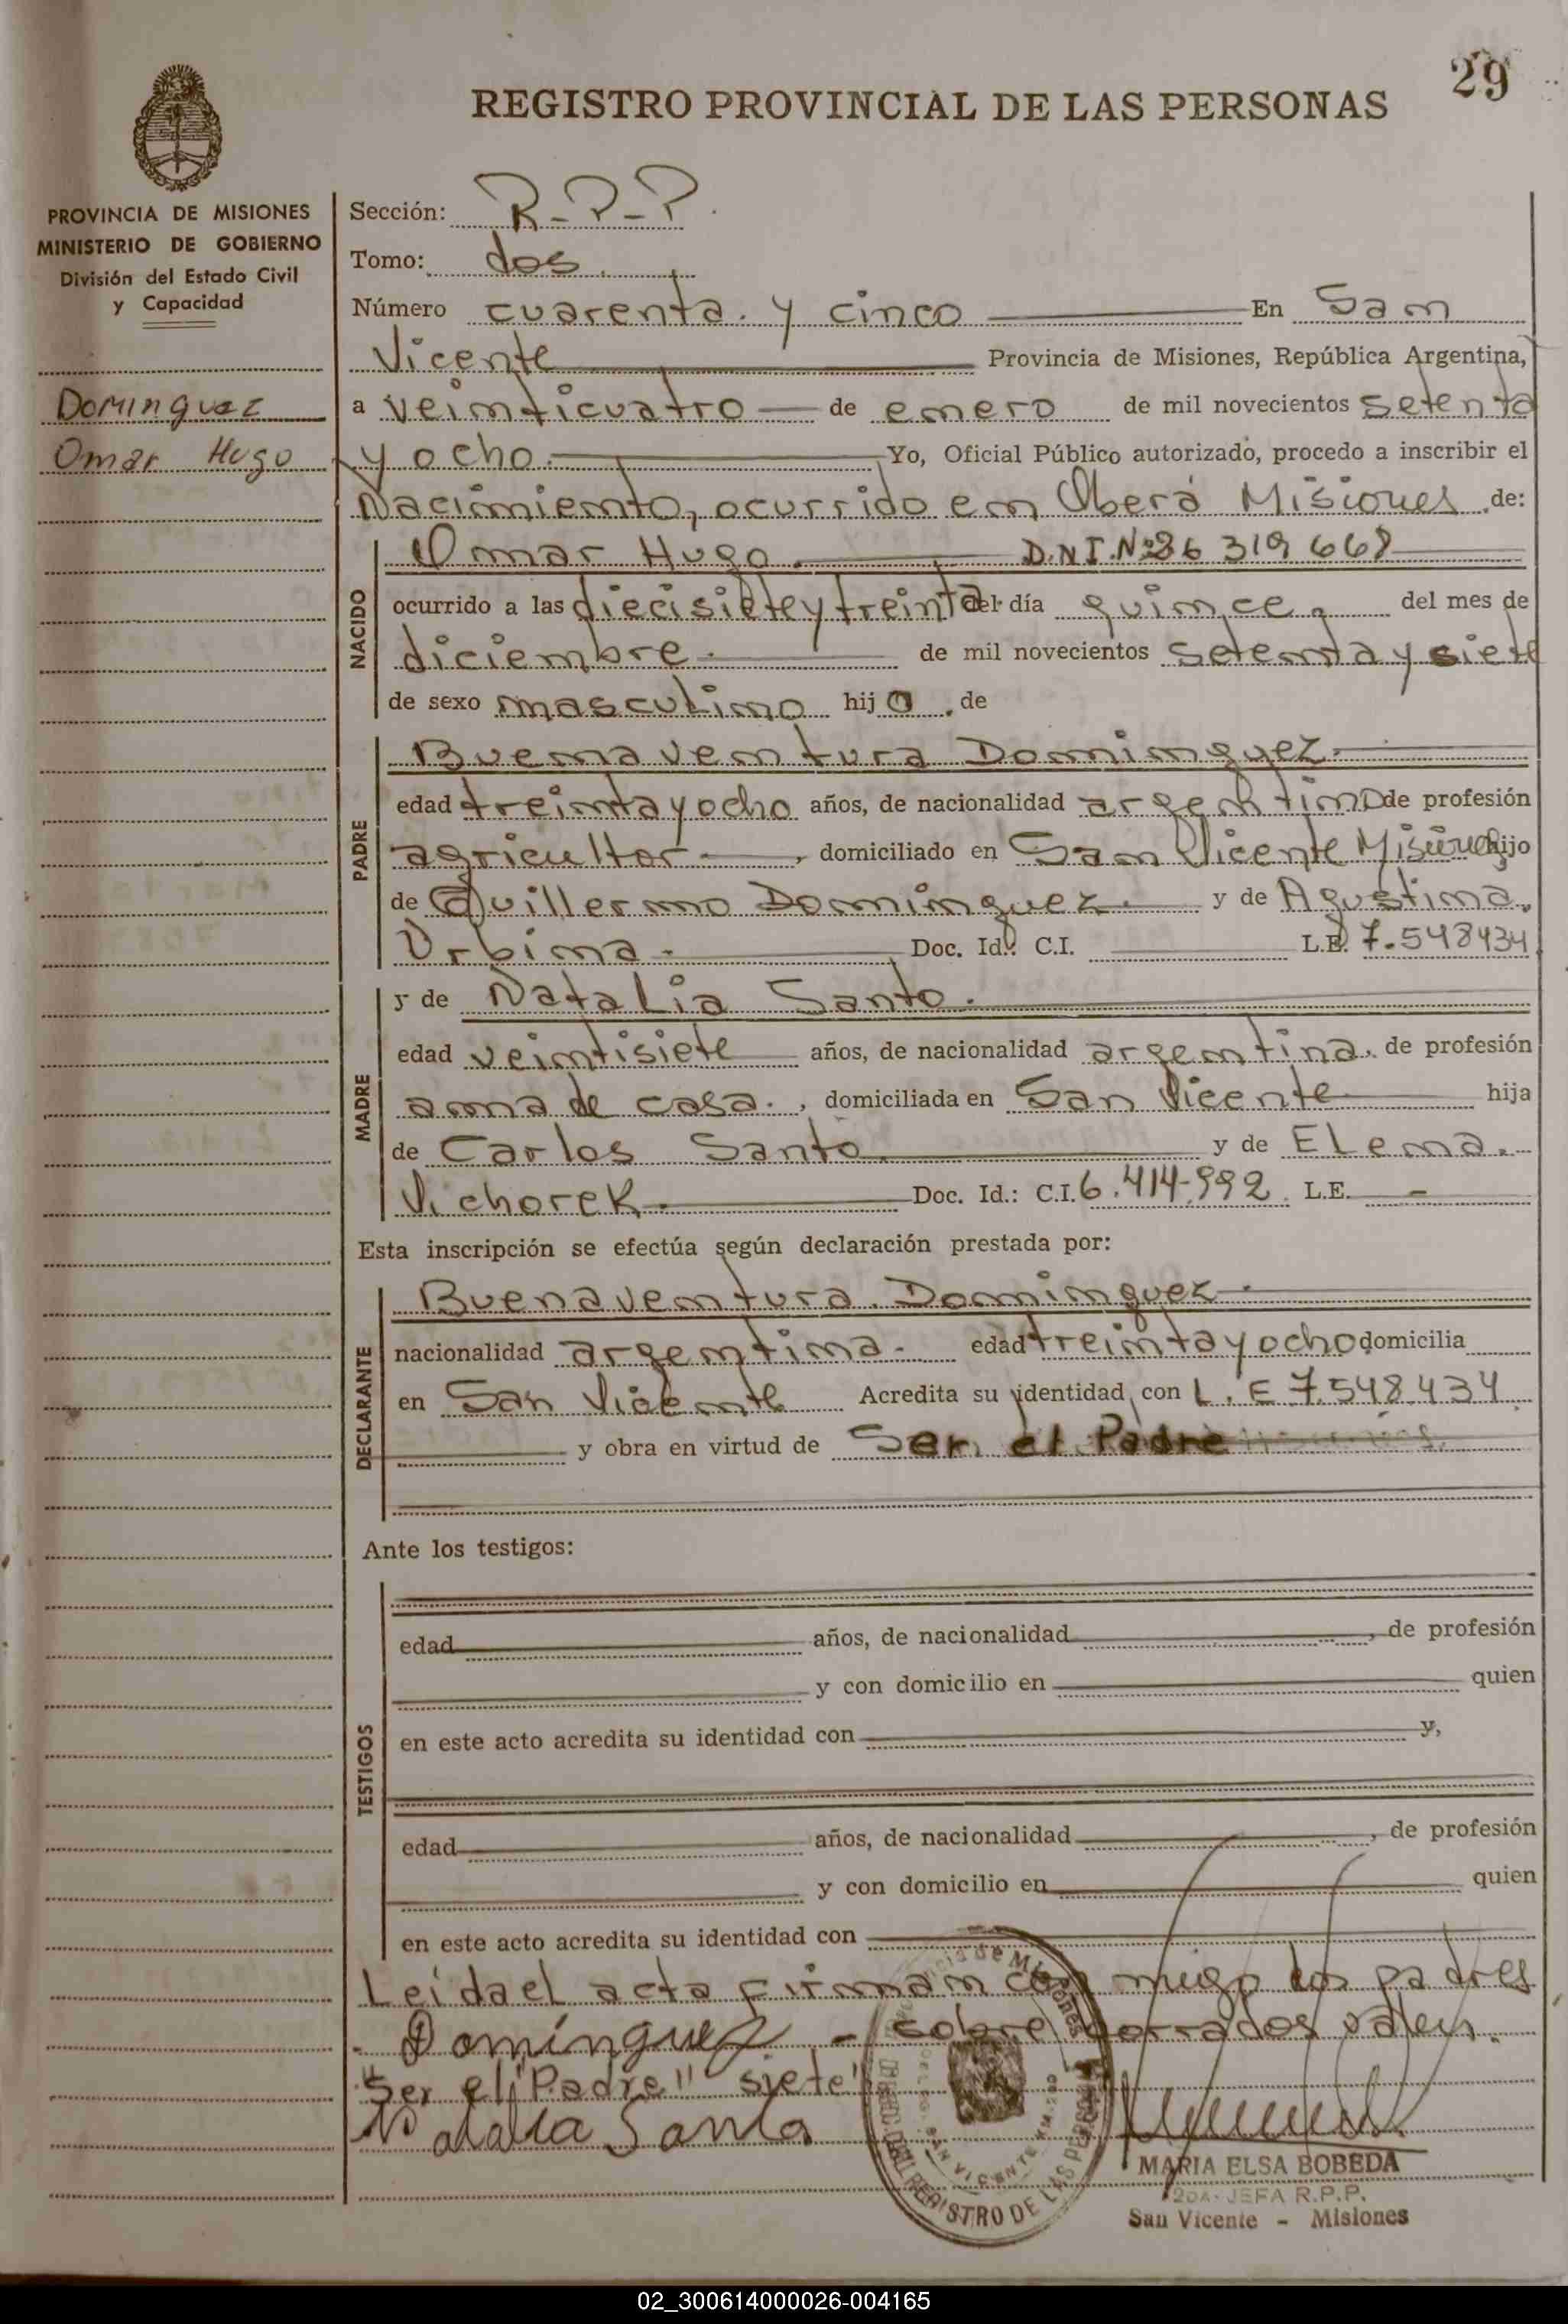 29
REGISTRO PROVINCIAL DE LAS PERSONAS
PROVINCIA DE MISIONES
MINISTERIO DE GOBIERNO
División del Estado Civil
y Capacidad
Dominguez
Omar Hugo
Sección: R-P-P.
Tomo: dos.
Número cuarenta y cinco En San
Vicente Provincia de Misiones, República Argentina,
a veinticuatro de enero de mil novecientos setenta
y ocho. Yo, Oficial Público autorizado, procedo a inscribir el
Nacimiento, ocurrido en Oberá Misiones de:
NACIDO
Omar Hugo. D.N.I. Nº 26 319 668
ocurrido a las diecisiete y treinta del día quince. del mes de
diciembre. de mil novecientos setenta y siete
de sexo masculino hijo, de
PADRE
Buenaventura Dominguez.
edad treinta y ocho años, de nacionalidad argentino de profesión
agricultor, domiciliado en San Vicente Misiones hijo
de Guillermo Dominguez. y de Agustina.
Urbina. Doc. Id.: C.I. L.E. 7.548434
MADRE
y de Natalia Santo.
edad veintisiete años, de nacionalidad argentina, de profesión
ama de casa., domiciliada en San Vicente hija
de Carlos Santo. y de Elena.
Vichorek. Doc. Id.: C.I. 6.414-992 L.E. -
Esta inscripción se efectúa según declaración prestada por:
DECLARANTE
Buenaventura. Dominguez.
nacionalidad argentina. edad treinta y ocho domicilia
en San Vicente Acredita su identidad con L.E 7.548.434
y obra en virtud de Ser el Padre
Ante los testigos:
TESTIGOS
edad años, de nacionalidad, de profesión
y con domicilio en quien
en este acto acredita su identidad con y,
edad años, de nacionalidad, de profesión
y con domicilio en quien
en este acto acredita su identidad con
Leída el acta firman con migo los padres
Domínguez - sobre borrados valen.
"Ser el "Padre" siete"
Natalia Santo
Misiones
SAN VICENTE
REGISTRO DE LAS PERSONAS
MARIA ELSA BOBEDA
2DA. JEFA R.P.P.
San Vicente - Misiones
02_300614000026-004165